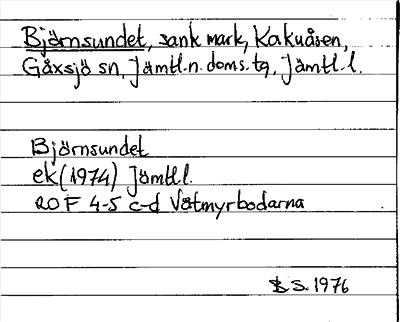 Björnsundet, sank mark, Kakuåsen,
Gåxsjö sn, Jämtl.n. doms.tg, Jämtl.l.
Björnsundet
ek (1974) Jämtl.l.
20 F 4-5 c-d Våtmyrbodarna
S. 1976